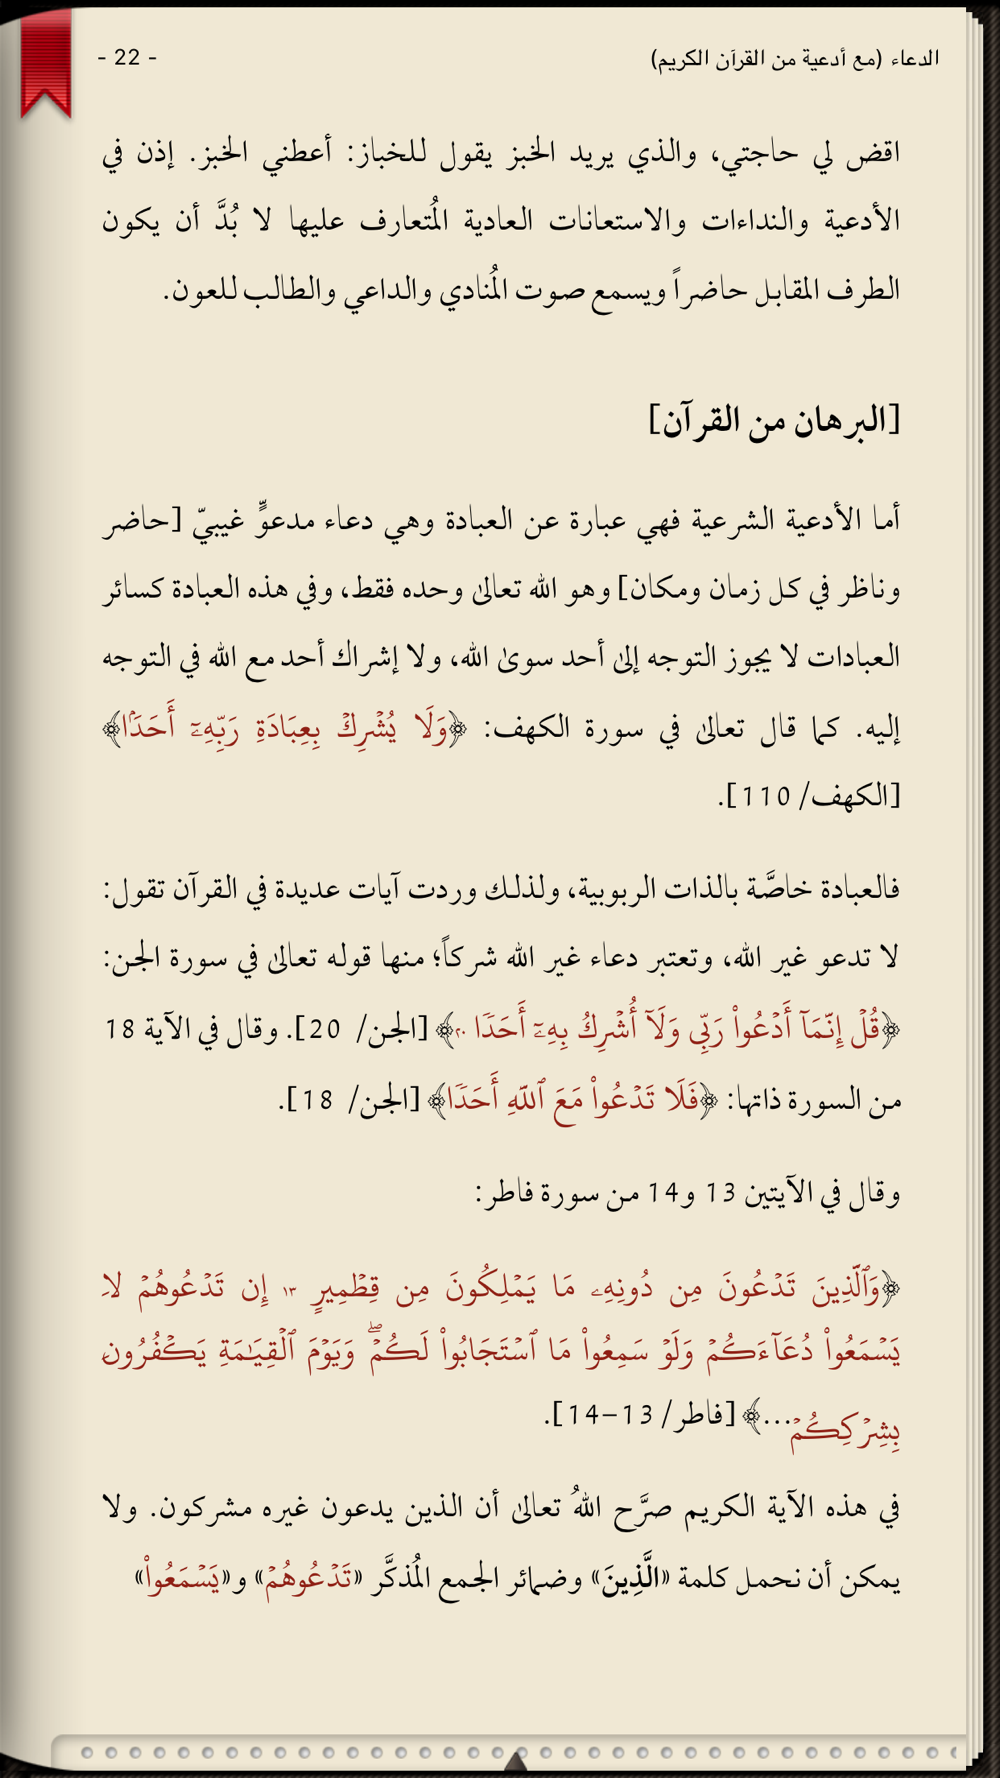 الدعاء (مع أدعية من القرآن الكريم)
- 22 -
اقض لي حاجتي، والذي يريد الخبز يقول للخباز: أعطني الخبز. إذن في
الأدعية والنداءات والاستعانات العادية المُتعارف عليها لا بُدَّ أن يكون
الطرف المقابل حاضراً ويسمع صوت المُنادي والداعي والطالب للعون.
[البرهان من القرآن]
أما الأدعية الشرعية فهي عبارة عن العبادة وهي دعاء مدعوٍّ غيبيّ [حاضر
وناظر في كل زمان ومكان] وهو الله تعالىٰ وحده فقط، وفي هذه العبادة كسائر
العبادات لا يجوز التوجه إلىٰ أحد سوىٰ الله، ولا إشراك أحد مع الله في التوجه
إليه. كما قال تعالىٰ في سورة الكهف: ﴿وَلَا يُشۡرِكۡ بِعِبَادَةِ رَبِّهِۦٓ أَحَدَۢا﴾
[الكهف/ 110].
فالعبادة خاصَّة بالذات الربوبية، ولذلك وردت آيات عديدة في القرآن تقول:
لا تدعو غير الله، وتعتبر دعاء غير الله شركاً؛ منها قوله تعالىٰ في سورة الجن:
﴿قُلۡ إِنَّمَآ أَدۡعُواْ رَبِّي وَلَآ أُشۡرِكُ بِهِۦٓ أَحَدٗا ٢٠﴾ [الجن/ 20]. وقال في الآية 18
من السورة ذاتها: ﴿فَلَا تَدۡعُواْ مَعَ ٱللَّهِ أَحَدٗا﴾ [الجن/ 18].
وقال في الآيتين 13 و14 من سورة فاطر:
﴿وَٱلَّذِينَ تَدۡعُونَ مِن دُونِهِۦ مَا يَمۡلِكُونَ مِن قِطۡمِيرٍ ١٣ إِن تَدۡعُوهُمۡ لَا
يَسۡمَعُواْ دُعَآءَكُمۡ وَلَوۡ سَمِعُواْ مَا ٱسۡتَجَابُواْ لَكُمۡۖ وَيَوۡمَ ٱلۡقِيَٰمَةِ يَكۡفُرُونَ
بِشِرۡكِكُمۡ...﴾ [فاطر/ 13–14].
في هذه الآية الكريم صرَّح اللهُ تعالىٰ أن الذين يدعون غيره مشركون. ولا
يمكن أن نحمل كلمة «الَّذِينَ» وضمائر الجمع المُذكَّر «تَدۡعُوهُمۡ» و«يَسۡمَعُواْ»